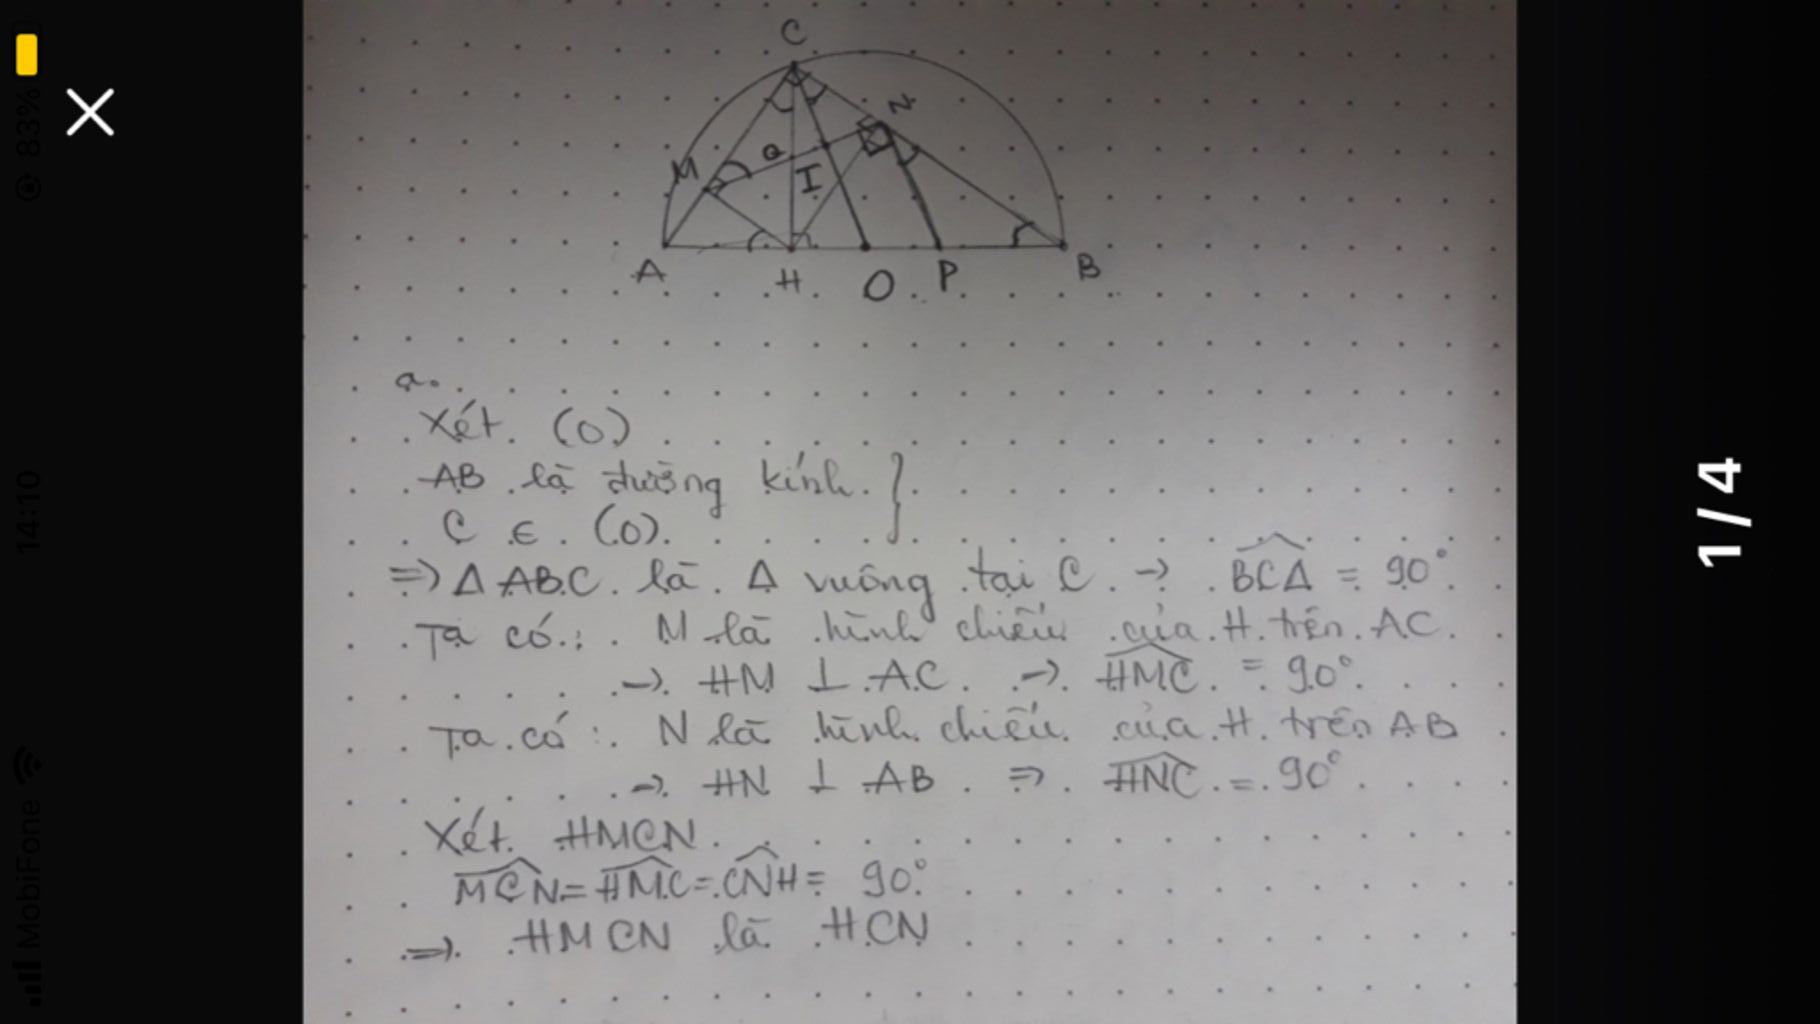 C
N
M
Q
I
A
H
O
P
B
a.
Xét (O)
AB là đường kính }
C ∈ (O)
=> Δ ABC là Δ vuông tại C -> BCA = 90°
Ta có: M là hình chiếu của H trên AC
-> HM ⊥ AC -> HMC = 90°
Ta có: N là hình chiếu của H trên AB
-> HN ⊥ AB => HNC = 90°
Xét HMCN
MCN = HMC = CNH = 90°
=> HMCN là HCN
1/4
83%
14:10
MobiFone